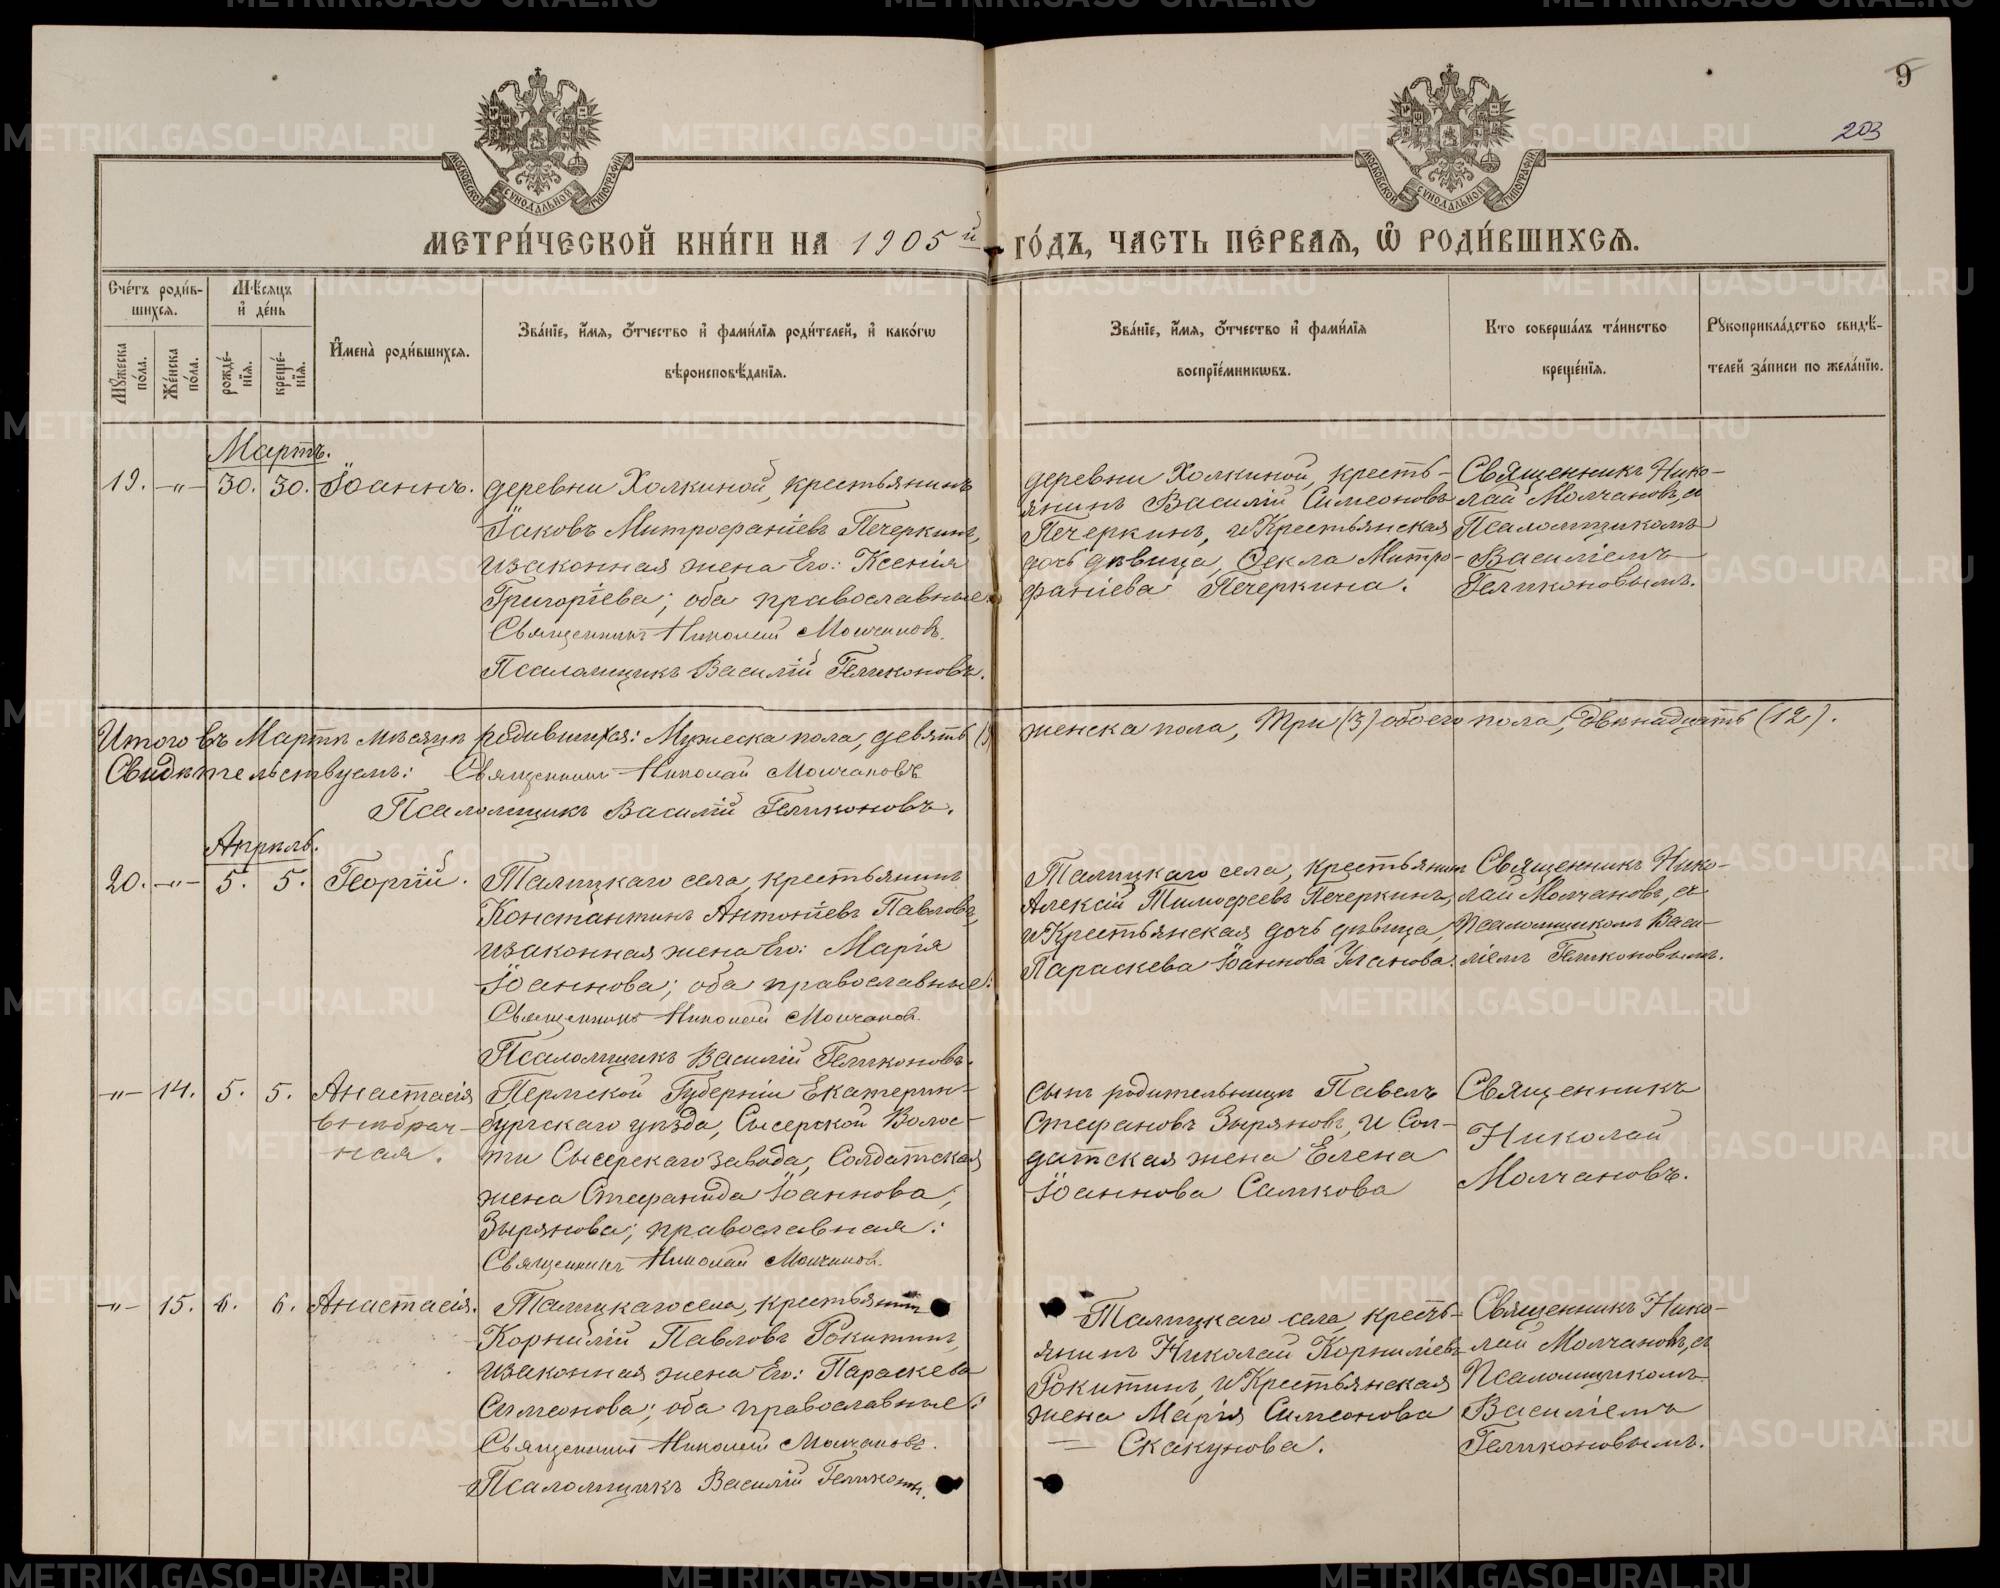 9
203
МОСКОВСКОЙ СѴНОДАЛЬНОЙ ТИПОГРАФІИ
МОСКОВСКОЙ СѴНОДАЛЬНОЙ ТИПОГРАФІИ
МЕТРИ́ЧЕСКОЙ КНИ́ГИ НА 1905й ГО́ДЪ, ЧАСТЬ ПЕ́РВАѦ, Ѡ҆ РОДИ́ВШИХСѦ.
Сче́тъ роди́в-
шихсѧ.
Мѣ́сѧцъ
и҆ де́нь
Мꙋ́жеска
по́ла.
Же́нска
по́ла.
рожде́-
нїѧ.
креще́-
нїѧ.
И҆мена̀ роди́вшихсѧ.
Зва́нїе, и҆́мѧ, ѻ҆́тчество и҆ фами́лїѧ роди́телей, и҆ како́гѡ
вѣроисповѣ́данїѧ.
Зва́нїе, и҆́мѧ, ѻ҆́тчество и҆ фами́лїѧ
воспрїе́мникѡвъ.
Кто соверша́лъ та́инство
креще́нїѧ.
Рꙋкоприкла́дство свидѣ́-
телей за́писи по жела́нїю.
Мартъ.
19. —„— 30. 30. Іоаннъ.
деревни Холкиной, крестьянинъ
Іаковъ Митрофаніевъ Печеркинъ,
изаконная жена Его: Ксенія
Григоріева; оба православные
Священникъ Николай Молчановъ.
Псаломщикъ Василій Геликоновъ.
деревни Холкиной, кресть-
янинъ Василій Симеоновъ
Печеркинъ, и Крестьянская
дочь дѣвица, Ѳекла Митро-
фаніева Печеркина.
Священникъ Нико-
лай Молчановъ, съ
Псаломщикомъ
Василіемъ
Геликоновымъ.
Итого въ Мартѣ мѣсяцѣ родившихся: Мужеска пола, девять (9) женска пола, три (3) обоего пола, двѣнадцать (12).
Свидѣтельствуемъ: Священникъ Николай Молчановъ
Псаломщикъ Василій Геликоновъ.
Апрѣль.
20. —„— 5. 5. Георгій.
Талицкаго села, крестьянинъ
Константинъ Антоніевъ Павловъ,
изаконная жена Его: Марія
Іоаннова; оба православные:
Священникъ Николай Молчановъ.
Псаломщикъ Василій Геликоновъ.
Талицкаго села, крестьянинъ
Алексій Тимофеевъ Печеркинъ,
и Крестьянская дочь дѣвица,
Параскева Іоаннова Уланова.
Священникъ Нико-
лай Молчановъ, съ
Псаломщикомъ Васи-
ліемъ Геликоновымъ.
—„— 14. 5. 5. Анастасія
внѣбрач-
ная.
Пермской Губерніи Екатерин-
бургскаго уѣзда, Сысерской Волос-
ти Сысерскаго завода, Солдатская
жена Стефанида Іоаннова,
Зырянова; православная:
Священникъ Николай Молчановъ.
сынъ родительницы Павелъ
Стефановъ Зыряновъ, и Сол-
датская жена Елена
Іоаннова Самкова
Священникъ
Николай
Молчановъ.
—„— 15. 6. 6. Анастасія.
Талицкаго села, крестьянинъ
Корнилій Павловъ Рокитинъ,
изаконная жена Его: Параскева
Симеонова; оба православные:
Священникъ Николай Молчановъ.
Псаломщикъ Василій Геликоновъ.
Талицкаго села, кресть-
янинъ Николай Корниліевъ
Рокитинъ, и Крестьянская
жена Марія Симеонова
Скакунова.
Священникъ Нико-
лай Молчановъ, съ
Псаломщикомъ
Василіемъ
Геликоновымъ.
METRIKI.GASO-URAL.RU